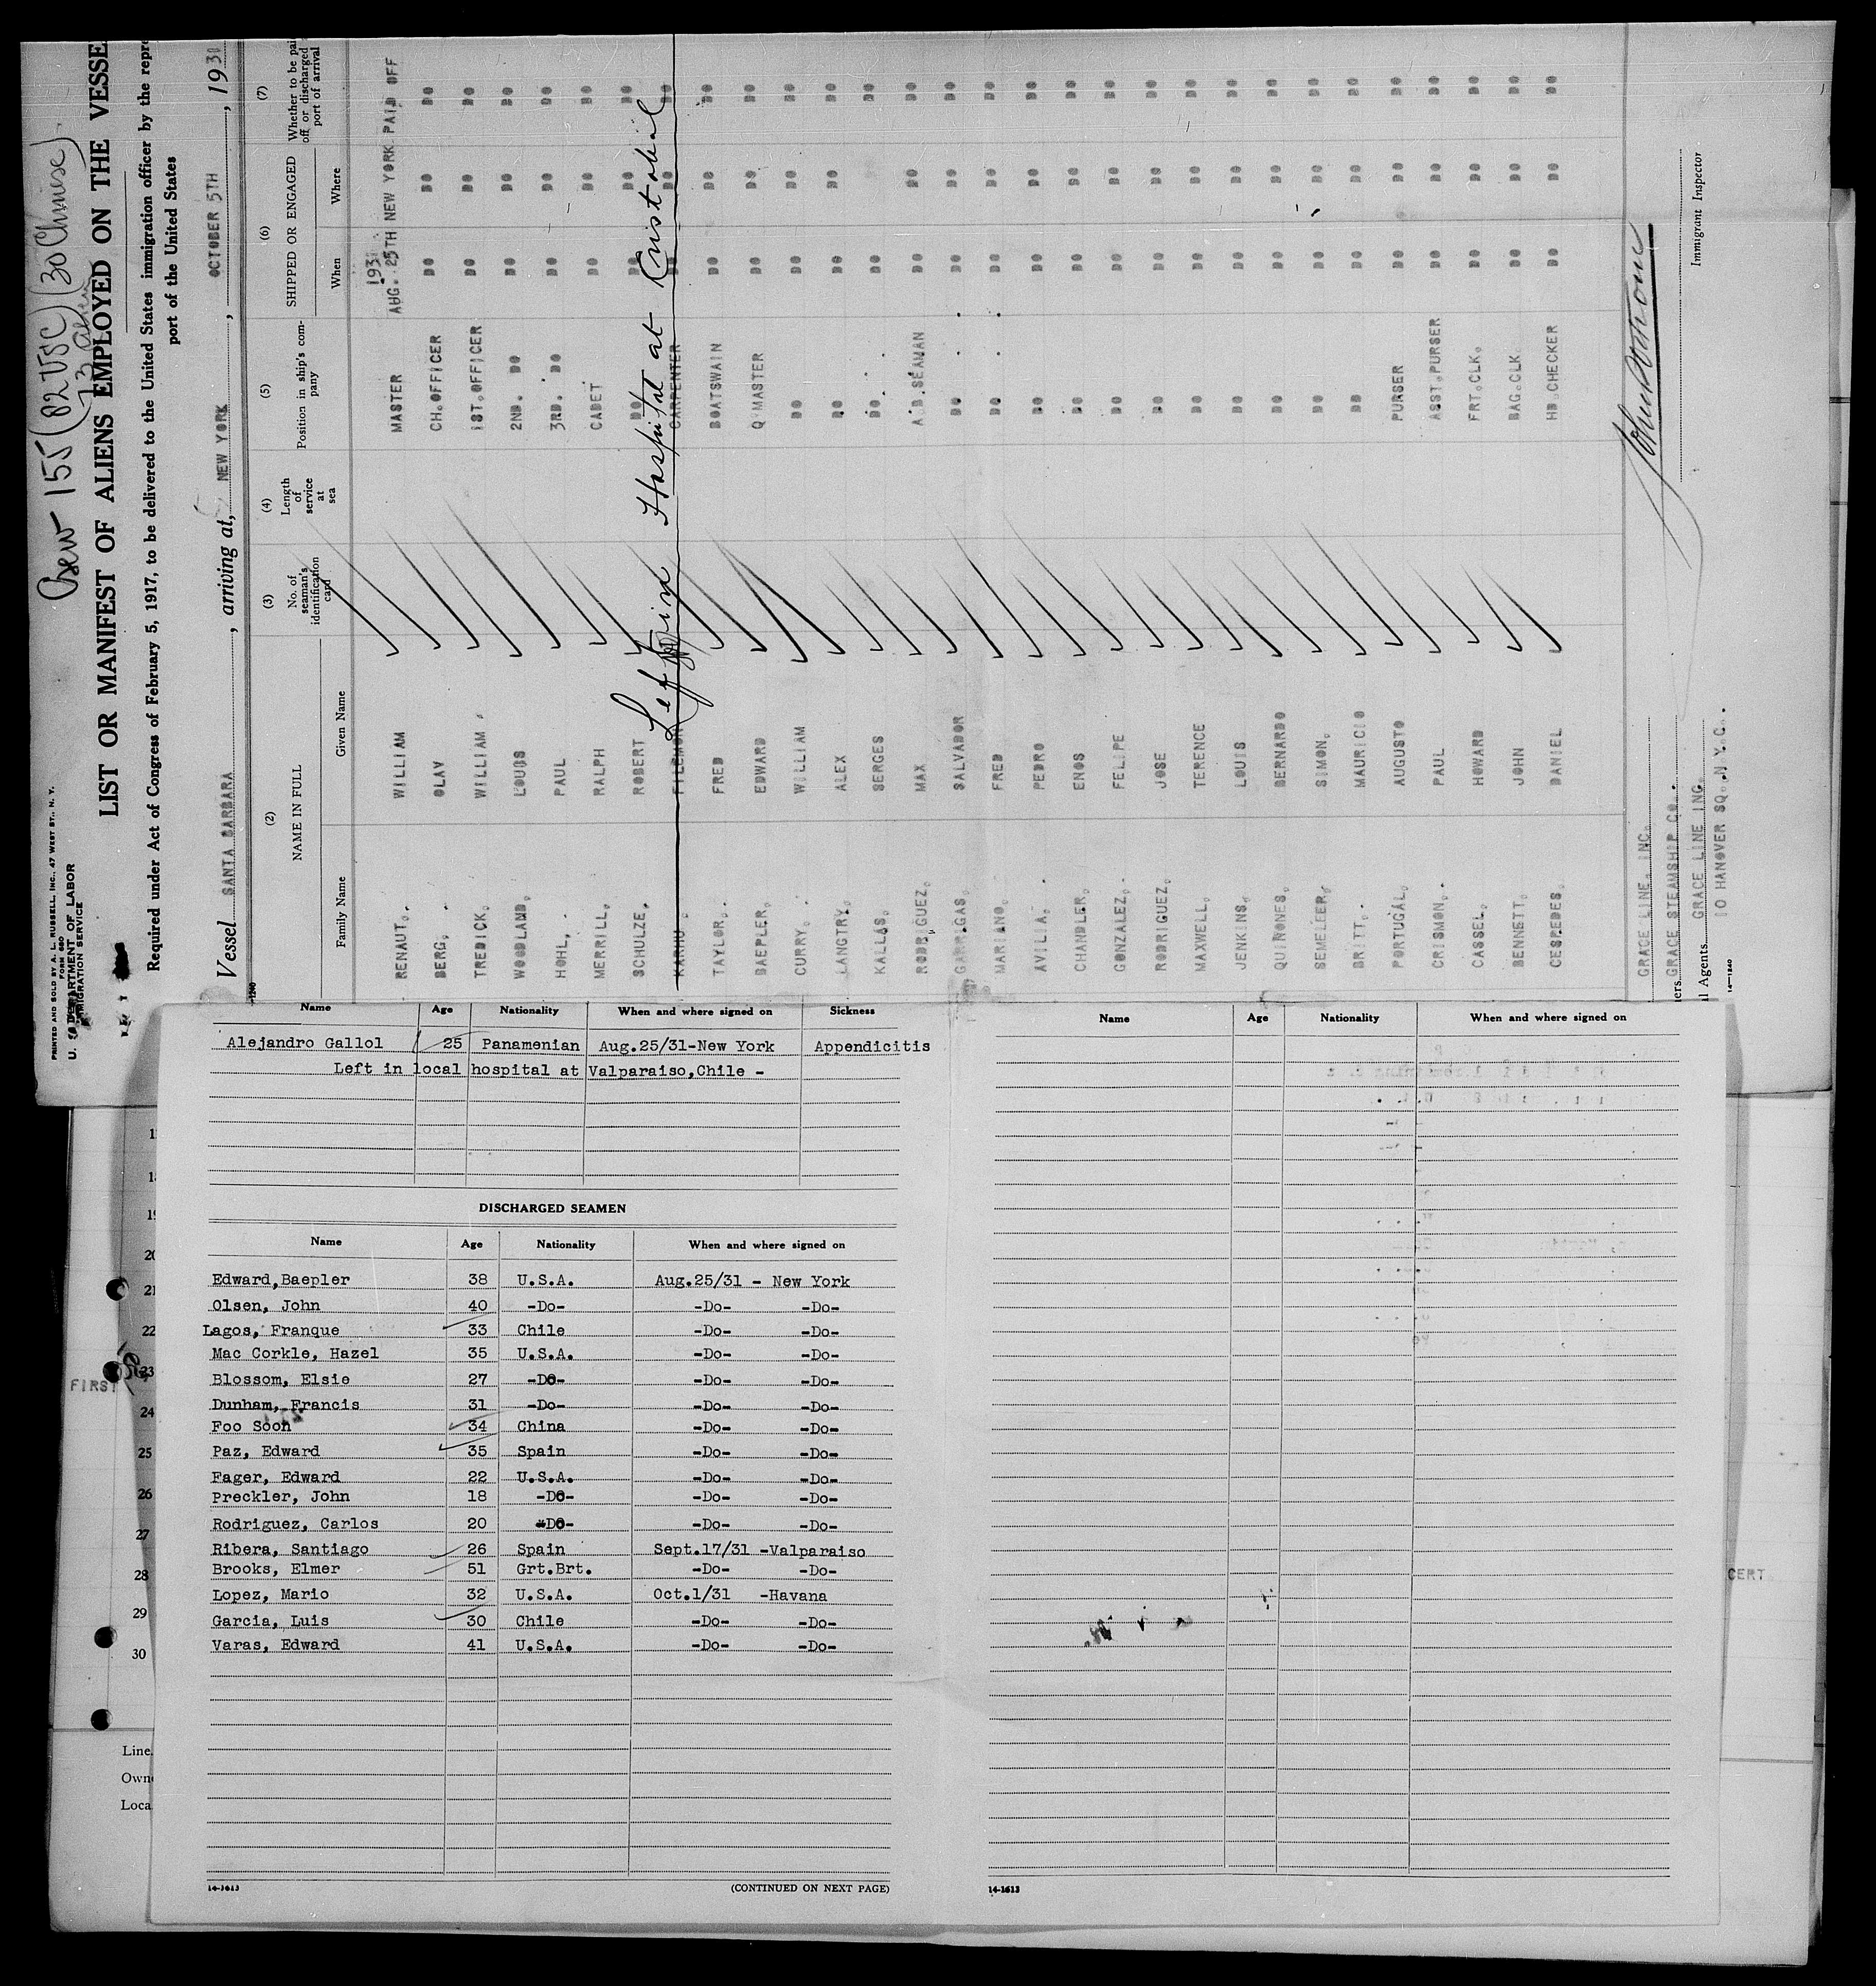 Crew 155 (82 USC) (30 Chinese)
PRINTED AND SOLD BY A. L. RUSSELL, INC., 47 WEST ST., N. Y.
FORM 680
U. S. DEPARTMENT OF LABOR
IMMIGRATION SERVICE
LIST OR MANIFEST OF ALIENS EMPLOYED ON THE VESSE
Required under Act of Congress of February 5, 1917, to be delivered to the United States immigration officer by the repre
port of the United States
Vessel SANTA BARBARA, arriving at, NEW YORK, OCTOBER 5TH, 1931
(2) (3) (4) (5) (6) (7)
NAME IN FULL No. of seaman's identification card Length of service at sea Position in ship's company SHIPPED OR ENGAGED Whether to be pai off or discharged port of arrival
Family Name Given Name When Where
1931
RENAUT. WILLIAM MASTER AUG. 25TH NEW YORK PAID OFF
BERG, OLAV CH.OFFICER DO DO DO
TREDICK, WILLIAM 1ST.OFFICER DO DO DO
WOODLAND, LOUIS 2ND. DO DO DO DO
HOHL, PAUL 3RD. DO DO DO DO
MERRILL, RALPH CADET DO DO DO
SCHULZE, ROBERT DO DO DO DO
KARHU FILEMON CARPENTER DO DO DO
Left in Hospital at Cristobal
TAYLOR, FRED BOATSWAIN DO DO DO
BAEPLER, EDWARD Q'MASTER DO DO DO
CURRY, WILLIAM DO DO DO DO
LANGTRY, ALEX DO DO DO DO
KALLAS, SERGES DO DO DO
RODRIGUEZ, MAX A.B.SEAMAN DO DO DO
GARRIGAS, SALVADOR DO DO DO DO
MARIANO, FRED DO DO DO DO
AVILIA, PEDRO DO DO DO DO
CHANDLER, ENOS DO DO DO DO
GONZALEZ, FELIPE DO DO DO DO
RODRIGUEZ, JOSE DO DO DO DO
MAXWELL, TERENCE DO DO DO DO
JENKINS, LOUIS DO DO DO DO
QUINONES, BERNARDO DO DO DO DO
SEMELEER, SIMON. DO DO DO DO
BRITT. MAURICIO DO DO DO DO
PORTUGAL, AUGUSTO PURSER DO DO DO
CRISMON, PAUL ASST.PURSER DO DO DO
CASSEL, HOWARD FRT.CLK. DO DO DO
BENNETT, JOHN BAG.CLK. DO DO DO
CESPEDES, DANIEL HD.CHECKER DO DO DO
GRACE LINE, INC.
ners GRACE STEAMSHIP CO.
l Agents GRACE LINE INC.
10 HANOVER SQ., N.Y.C.
Immigrant Inspector
14—1240
Name Age Nationality When and where signed on Sickness
Alejandro Gallol 25 Panamenian Aug.25/31-New York Appendicitis
Left in local hospital at Valparaiso,Chile -
DISCHARGED SEAMEN
Name Age Nationality When and where signed on
Edward,Baepler 38 U.S.A. Aug.25/31 - New York
Olsen, John 40 -Do- -Do- -Do-
Lagos, Franque 33 Chile -Do- -Do-
Mac Corkle, Hazel 35 U.S.A. -Do- -Do-
Blossom, Elsie 27 -DO- -Do- -Do-
Dunham, Francis 31 -Do- -Do- -Do-
Foo Soon 34 China -Do- -Do-
Paz, Edward 35 Spain -Do- -Do-
Fager, Edward 22 U.S.A. -Do- -Do-
Preckler, John 18 -DO- -Do- -Do-
Rodriguez, Carlos 20 -DO- -Do- -Do-
Ribera, Santiago 26 Spain Sept.17/31 -Valparaiso
Brooks, Elmer 51 Grt.Brt. -Do- -Do-
Lopez, Mario 32 U.S.A. Oct.1/31 -Havana
Garcia, Luis 30 Chile -Do- -Do-
Varas, Edward 41 U.S.A. -Do- -Do-
14-1613 (CONTINUED ON NEXT PAGE)
Name Age Nationality When and where signed on
14-1613
20
21
22
23
FIRST
24
25
26
27
28
29
30
Line
Own
Loca
CERT